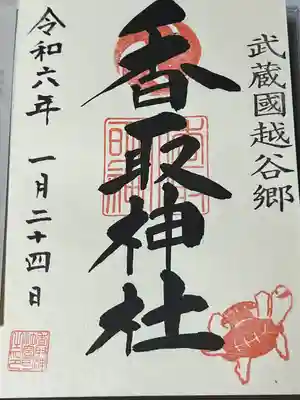 武蔵國越谷郷
香取神社
令和六年 一月二十四日